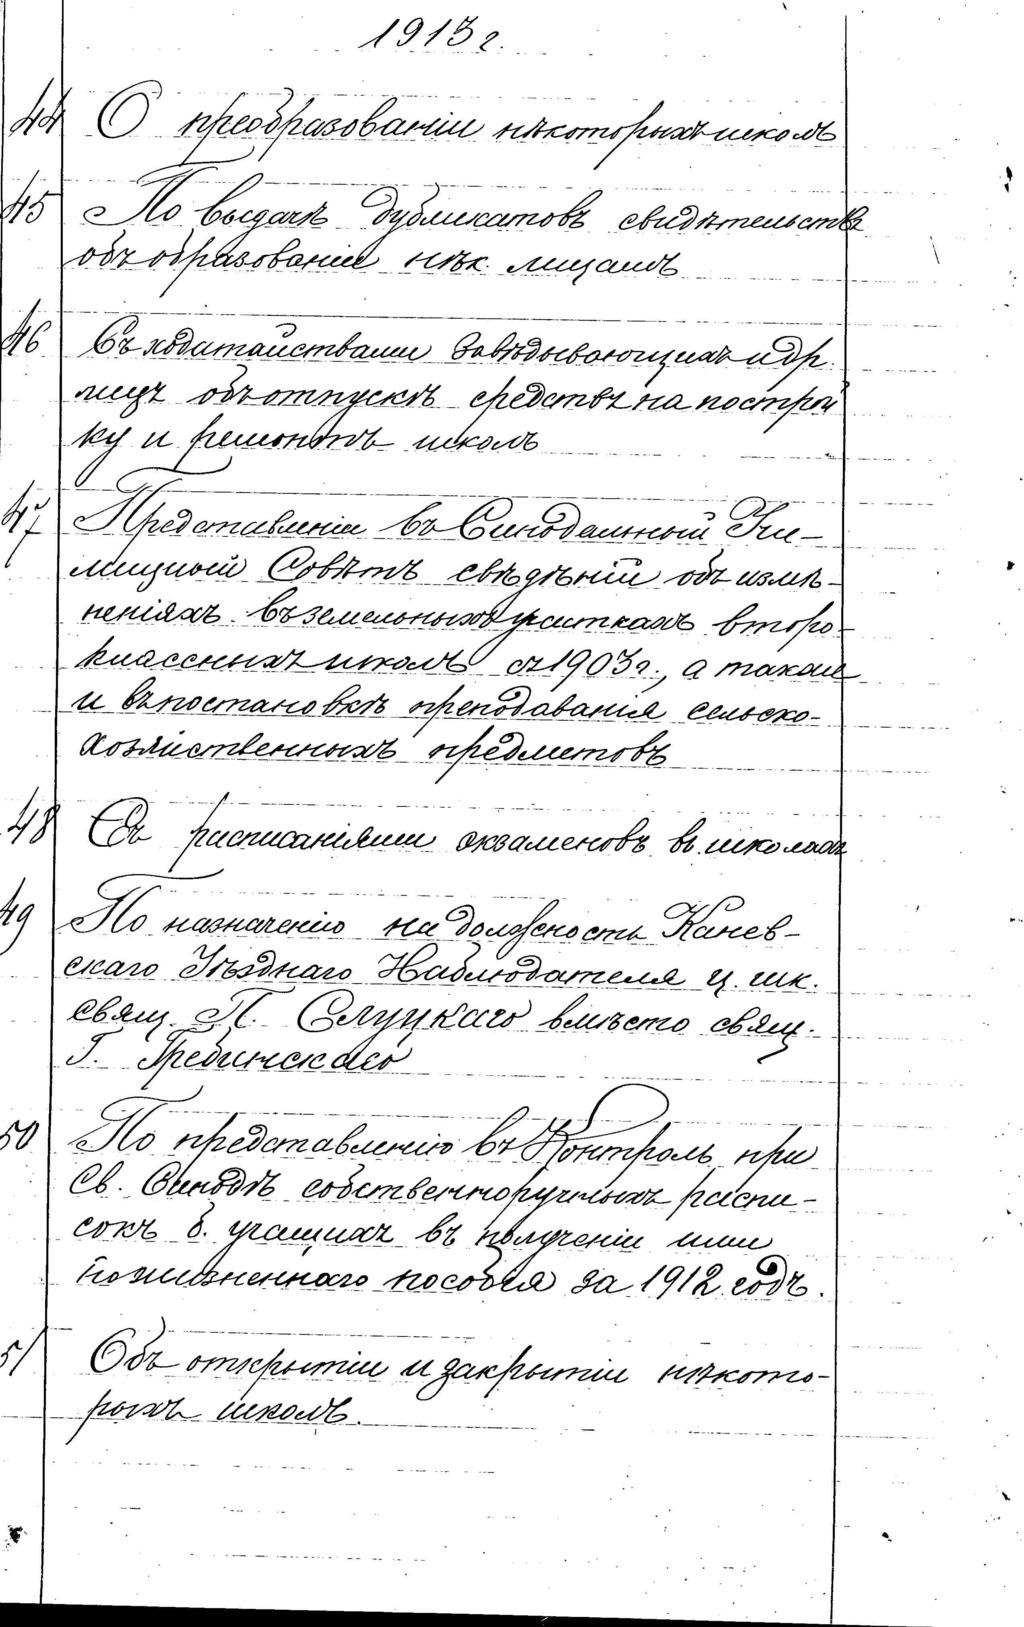 1913 г.
44 О преобразованіи нѣкоторыхъ школъ
45 По выдачѣ дубликатовъ свидѣтельствъ
объ образованіи нѣк. лицамъ
46 Съ ходатайствами завѣдывающихъ и др.
лицъ объ отпускѣ средствъ на построй
ку и ремонтъ школъ
47 Представленіе въ Синодальный Учи-
лищный Совѣтъ свѣдѣній объ измѣ-
неніяхъ въ земельныхъ участкахъ второ-
классныхъ школъ съ 1903 г., а также
и въ постановкѣ преподаванія сельско-
хозяйственныхъ предметовъ
48 Съ расписаніями экзаменовъ въ школахъ
49 По назначенію на должность Канев-
скаго Уѣзднаго Наблюдателя ц. шк.
свящ. П. Слуцкаго вмѣсто свящ.
Г. Гребинскаго
50 По представленію въ Контроль при
Св. Синодѣ собственноручныхъ распи-
сокъ б. учащихъ въ полученіи ими
пожизненнаго пособія за 1912 годъ.
51 Объ открытіи и закрытіи нѣкото-
рыхъ школъ.